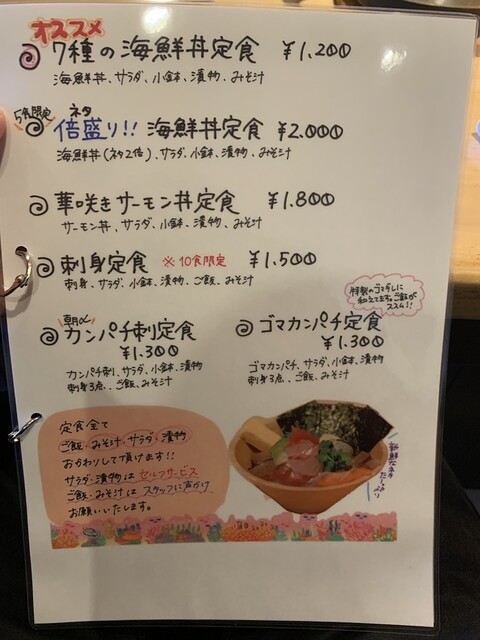 オススメ
7種の海鮮丼定食 ¥1,200
海鮮丼、サラダ、小鉢、漬物、みそ汁
5食限定
ネタ
倍盛り!! 海鮮丼定食 ¥2,000
海鮮丼(ネタ2倍)、サラダ、小鉢、漬物、みそ汁
華咲きサーモン丼定食 ¥1,800
サーモン丼、サラダ、小鉢、漬物、みそ汁
刺身定食 ※10食限定 ¥1,500
刺身、サラダ、小鉢、漬物、ご飯、みそ汁
朝〆
カンパチ刺定食
¥1,300
カンパチ刺、サラダ、小鉢、漬物
刺身3点、ご飯、みそ汁
特製のゴマダレに
和えてます。ご飯が
ススム!!
ゴマカンパチ定食
¥1,300
ゴマカンパチ、サラダ、小鉢、漬物
刺身3点、ご飯、みそ汁
定食全て
ご飯・みそ汁・サラダ・漬物
おかわりして頂けます!!
サラダ・漬物はセルフサービス
ご飯・みそ汁はスタッフに声かけ
お願いいたします。
新鮮なネタ
たっぷり